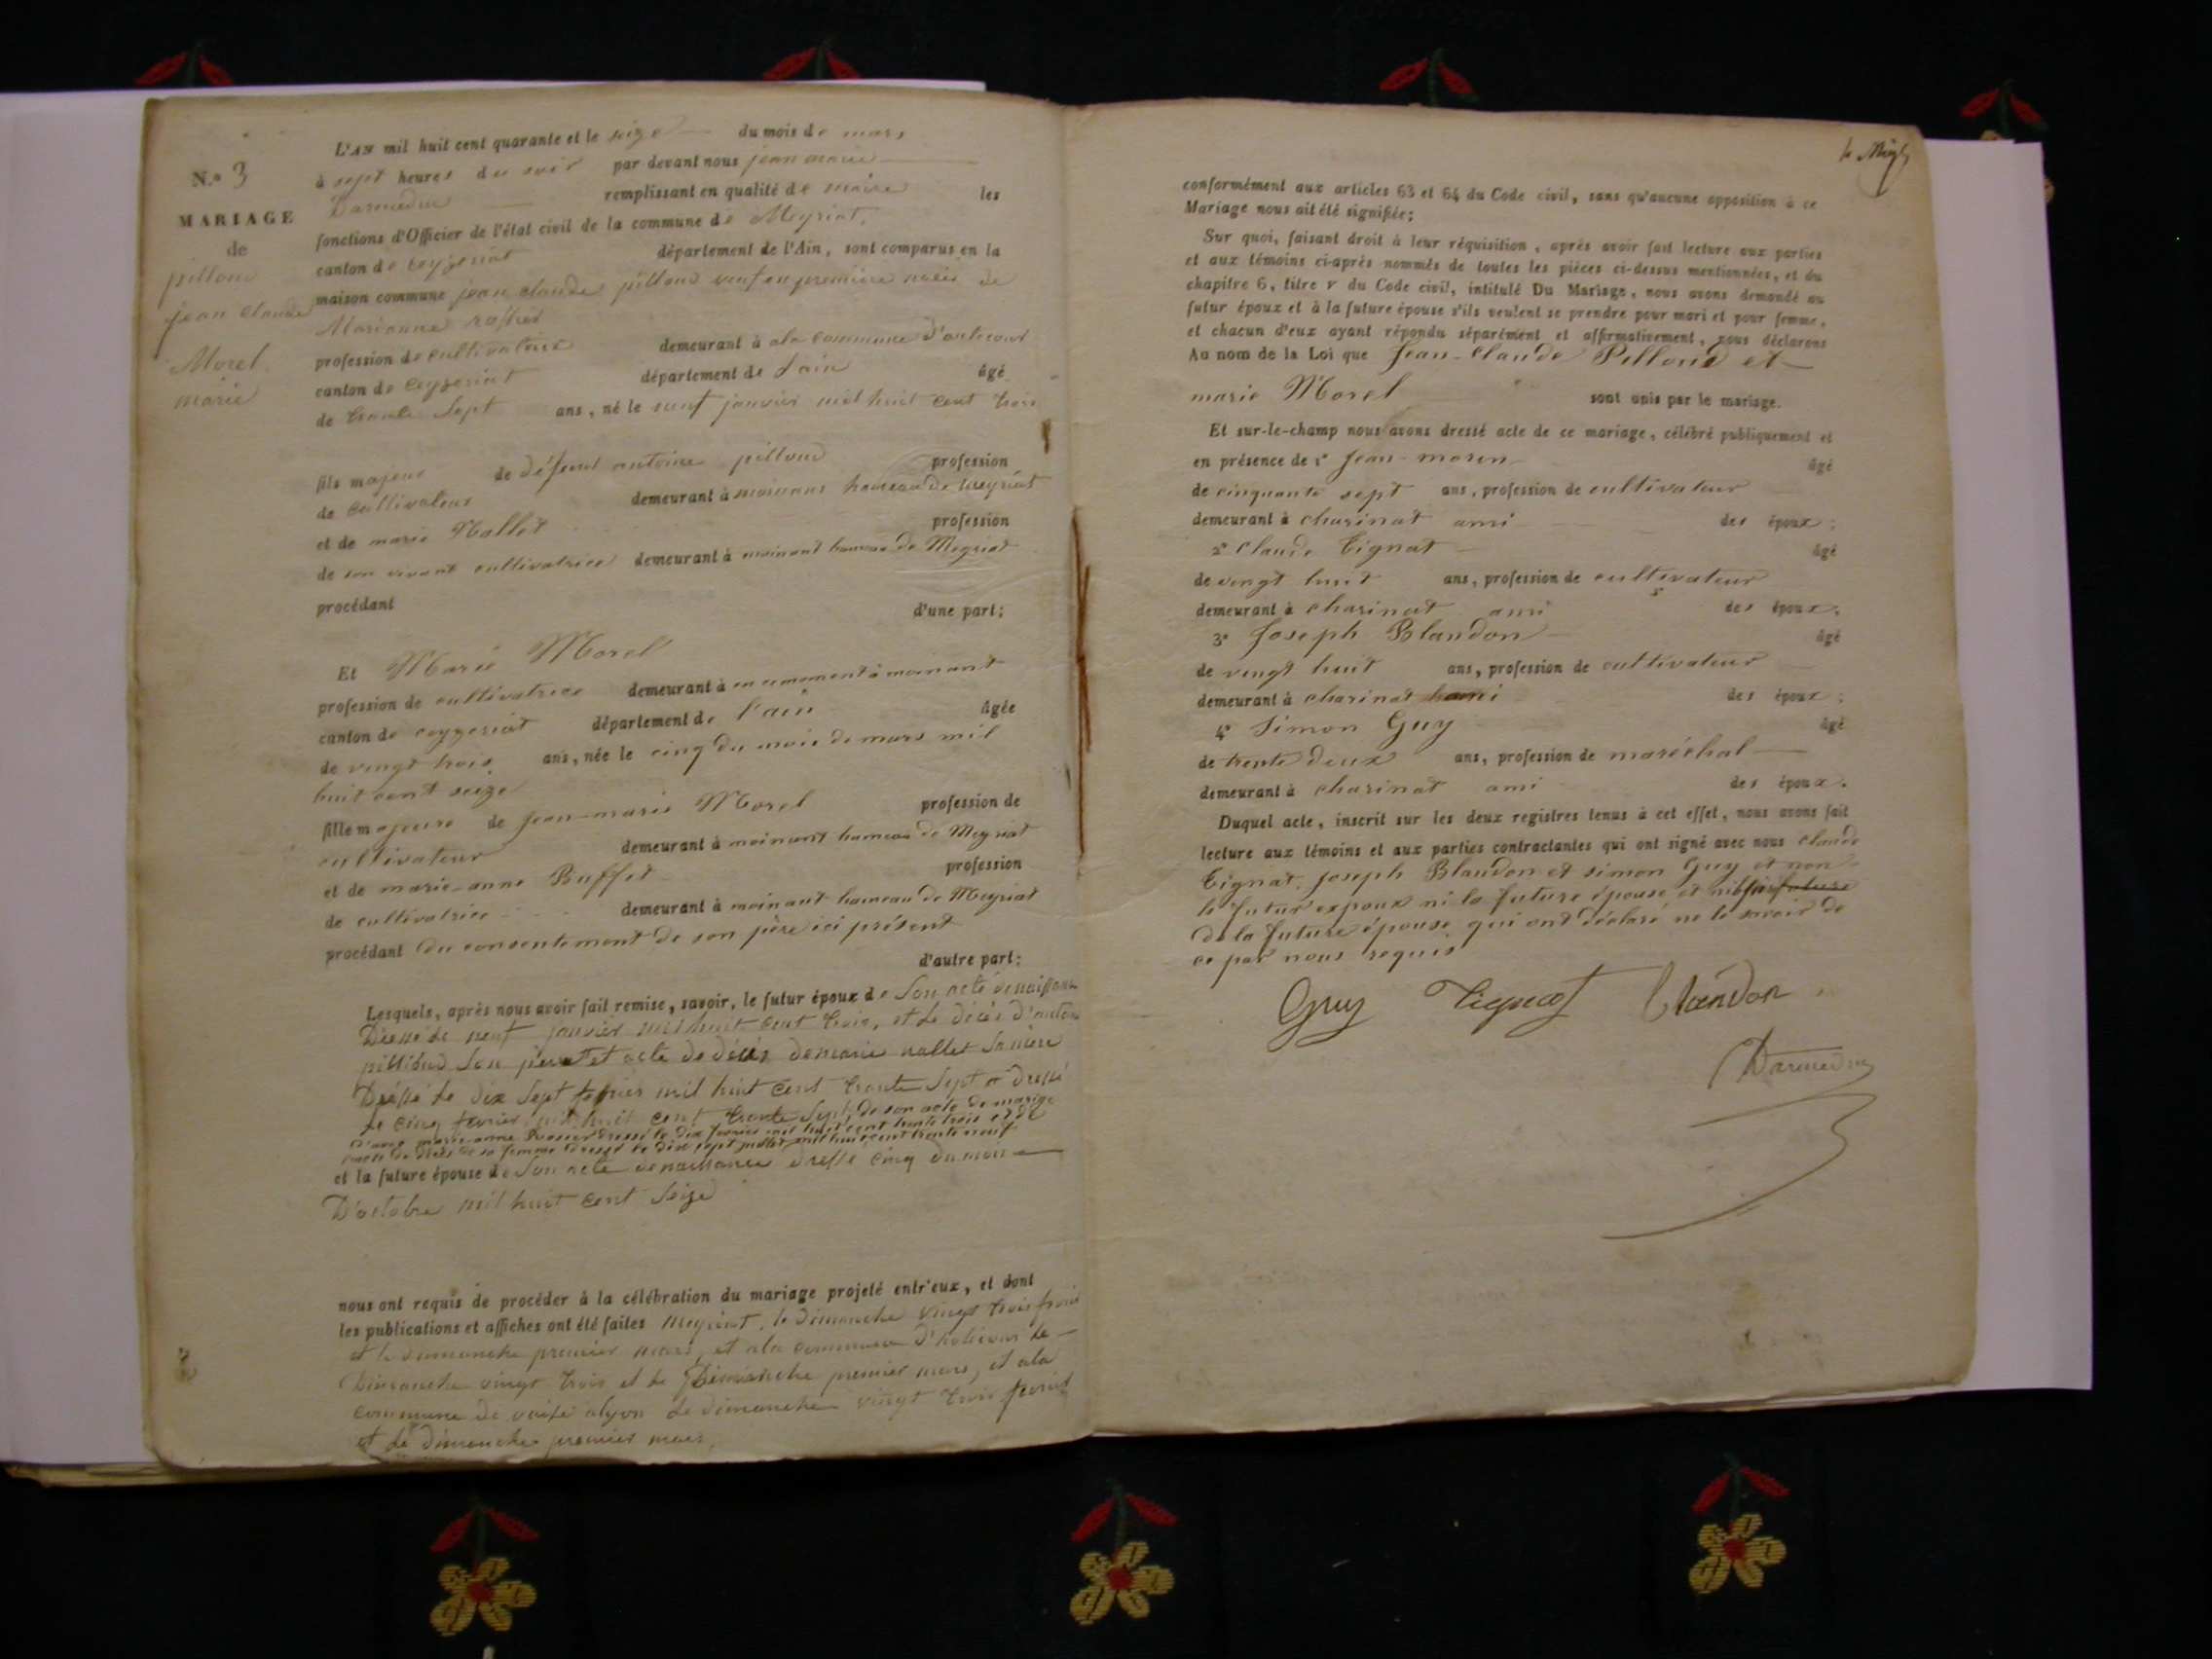 N.o 3
MARIAGE
de
pilloud
jean claude
Morel
marie
L'AN mil huit cent quarante et le seize du mois de mars
à sept heures du soir par devant nous jean marie
Darmedru remplissant en qualité de maire les
fonctions d'Officier de l'état civil de la commune de Meyriat,
canton de ceyzeriat département de l'Ain, sont comparus en la
maison commune jean claude pilloud veuf en première noces de
Marianne
profession de cultivateur demeurant à ala commune d'
canton de Ceyzeriat département de Lain âgé
de trente sept ans, né le neuf janvier mil huit cent trois
fils majeur de défunt antoine pilloud profession
de cultivateur demeurant à hameau de meyriat
et de marie Nallet profession
de son vivant cultivatrice demeurant à moinant hameau de Meyriat
procédant d'une part;
Et Marie Morel
profession de cultivatrice demeurant à en cemoment à moinant
canton de ceyzeriat département de l'ain âgée
de vingt trois ans, née le cinq du mois de mars mil
huit cent seize
fille majeure de Jean-marie Morel profession de
cultivateur demeurant à moinant hameau de Meyriat
et de marie-anne Buffet profession
de cultivatrice demeurant à moinant hameau de Meyriat
procédant du consentement de son père ici présent
d'autre part;
Lesquels, après nous avoir fait remise, savoir, le futur époux de Son acte de naissance
Dressé le neuf janvier mil huit cent trois, et le décès d'antoine
pilloud Son père et acte de décès de marie nallet Sa mère
Dressé le dix Sept fevrier mil huit cent trente Sept et dressé
Le cinq fevrier mil huit cent trente Sept, de son acte de mariage
d'avec marie-anne dressé le dix fevrier mil huit cent trente trois et de
l'acte de décès de sa femme dressé le dix sept juillet mil huit cent trente neuf
et la future épouse de Son acte de naissance dressé cinq du mois
D'octobre mil huit cent Seize
nous ont requis de procéder à la célébration du mariage projeté entr'eux, et dont
les publications et affiches ont été faites Meyriat, le dimanche vingt trois fevrier
et le dimanche premier mars, et ala commune d' le
Dimanche vingt trois et le Dimanche premier mars, et ala
commune de vaise alyon le dimanche vingt trois fevrier
et le dimanche premier mars,
conformément aux articles 63 et 64 du Code civil, sans qu'aucune opposition à ce
Mariage nous ait été signifiée;
Sur quoi, faisant droit à leur réquisition, après avoir fait lecture aux parties
et aux témoins ci-après nommés de toutes les pièces ci-dessus mentionnées, et du
chapitre 6, titre V du Code civil, intitulé Du Mariage, nous avons demandé au
futur époux et à la future épouse s'ils veulent se prendre pour mari et pour femme,
et chacun d'eux ayant répondu séparément et affirmativement, nous déclarons
Au nom de la Loi que Jean-Claude Pilloud et
marie Morel sont unis par le mariage.
Et sur-le-champ nous avons dressé acte de ce mariage, célébré publiquement et
en présence de 1° Jean-morin âgé
de cinquante sept ans, profession de cultivateur
demeurant à charinat ami des époux;
2° Claude Tignat âgé
de vingt huit ans, profession de cultivateur
demeurant à charinat ami des époux;
3° Joseph Blandon âgé
de vingt huit ans, profession de cultivateur
demeurant à charinat ami des époux;
4° Simon Guy âgé
de trente deux ans, profession de maréchal
demeurant à charinat ami des époux.
Duquel acte, inscrit sur les deux registres tenus à cet effet, nous avons fait
lecture aux témoins et aux parties contractantes qui ont signé avec nous Claude
Tignat, Joseph Blandon et simon Guy et non
le futur expoux ni la future épouse et ni
de la future épouse qui ont déclaré ne le savoir de
ce par nous requis
Guy Tignat Blandon
Darmedru